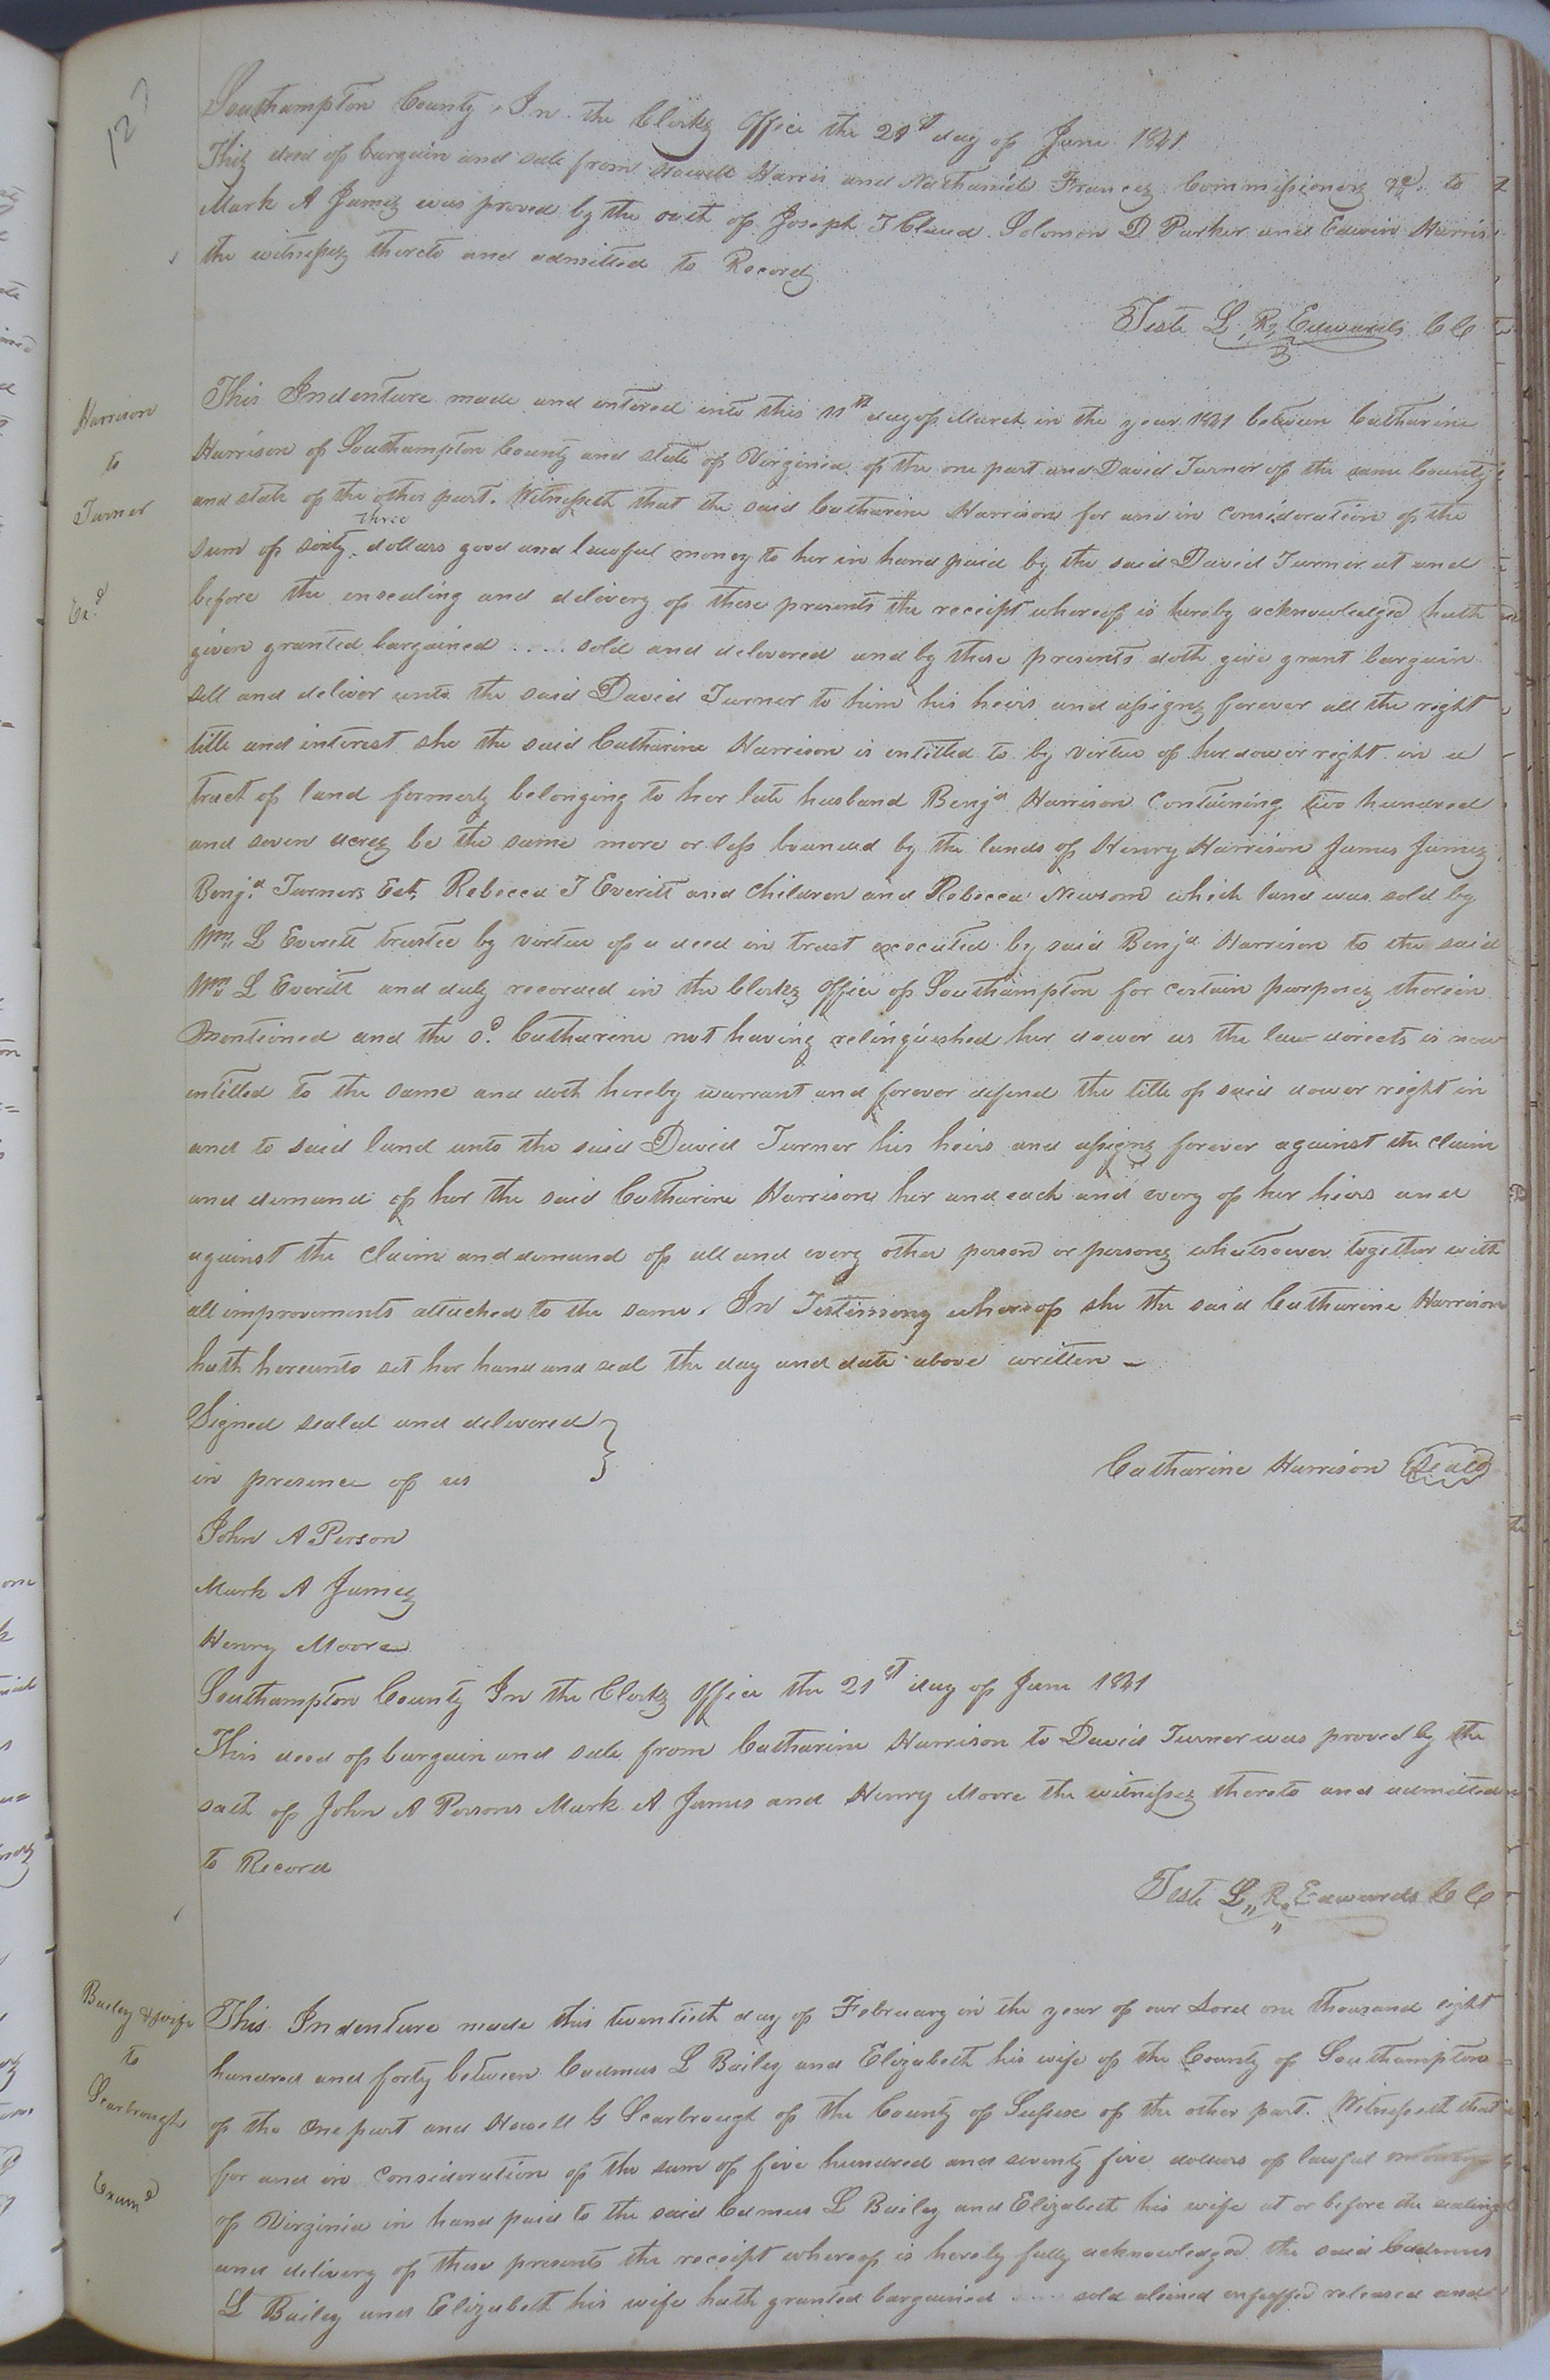 12
Southampton County, In the Clerks Office the 21st day of June 1841
This deed of bargain and sale from Howell Harris and Nathaniel Francis Commissioners &c. to
Mark A James was proved by the oath of Joseph T Claud Solomon D Parker and Edwin Harris
the witnesses thereto and admitted to Record
Teste L. R. Edwards CC
Harrison
to
Turner
Ex.d
This Indenture made and entered into this 11th day of March in the year 1841 between Catharine
Harrison of Southampton County and state of Virginia of the one part and David Turner of the same County
and state of the other part. Witnesseth that the said Catharine Harrison for and in consideration of the
three
sum of sixty dollars good and lawful money to her in hand paid by the said David Turner at and
before the ensealing and delivery of these presents the receipt whereof is hereby acknowledged hath
given granted bargained .... sold and delivered and by these presents doth give grant bargain
sell and deliver unto the said David Turner to him his heirs and assigns forever all the right
title and interest she the said Catharine Harrison is entitled to by virtue of her dower right in a
tract of land formerly belonging to her late husband Benja Harrison containing two hundred
and seven acres be the same more or less bounded by the lands of Henry Harrison James James
Benj.a Turners Est. Rebecca T Everitt and children and Rebecca Newsom which land was sold by
Wm. L Everett trustee by virtue of a deed in trust executed by said Benja Harrison to the said
Wm. L Everitt and duly recorded in the Clerks Office of Southampton for certain purposes therein
mentioned and the sd. Catharine not having relinquished her dower as the law directs is now
entitled to the same and doth hereby warrant and forever defend the title of said dower right in
and to said land unto the said David Turner his heirs and assigns forever against the claim
and demand of her the said Catharine Harrison her and each and every of her heirs and
against the claim and demand of all and every other person or persons whatsoever together with
all improvements attached to the same. In Testimony whereof she the said Catharine Harrison
hath hereunto set her hand and seal the day and date above written –
Signed sealed and delivered }
in presence of us
Catharine Harrison Seal
John A Person
Mark A James
Henry Moore
Southampton County In the Clerks Office the 21st day of June 1841
This deed of bargain and sale from Catharine Harrison to David Turner was proved by the
oath of John A Persons Mark A James and Henry Moore the witnesses thereto and admitted
to Record
Teste L. R. Edwards CC
Bailey & wife
to
Scarbrough
Examd
This Indenture made this twentieth day of February in the year of our Lord one thousand eight
hundred and forty between Cadmus L Bailey and Elizabeth his wife of the County of Southampton
of the one part and Howell G Scarbrough of the County of Sussex of the other part. Witnesseth that
for and in consideration of the sum of five hundred and seventy five dollars of lawful
of Virginia in hand paid to the said Cadmus L Bailey and Elizabeth his wife at or before the sealing
and delivery of these presents the receipt whereof is hereby fully acknowledged the said Cadmus
L Bailey and Elizabeth his wife hath granted bargained .... sold aliened enfeoffed released and